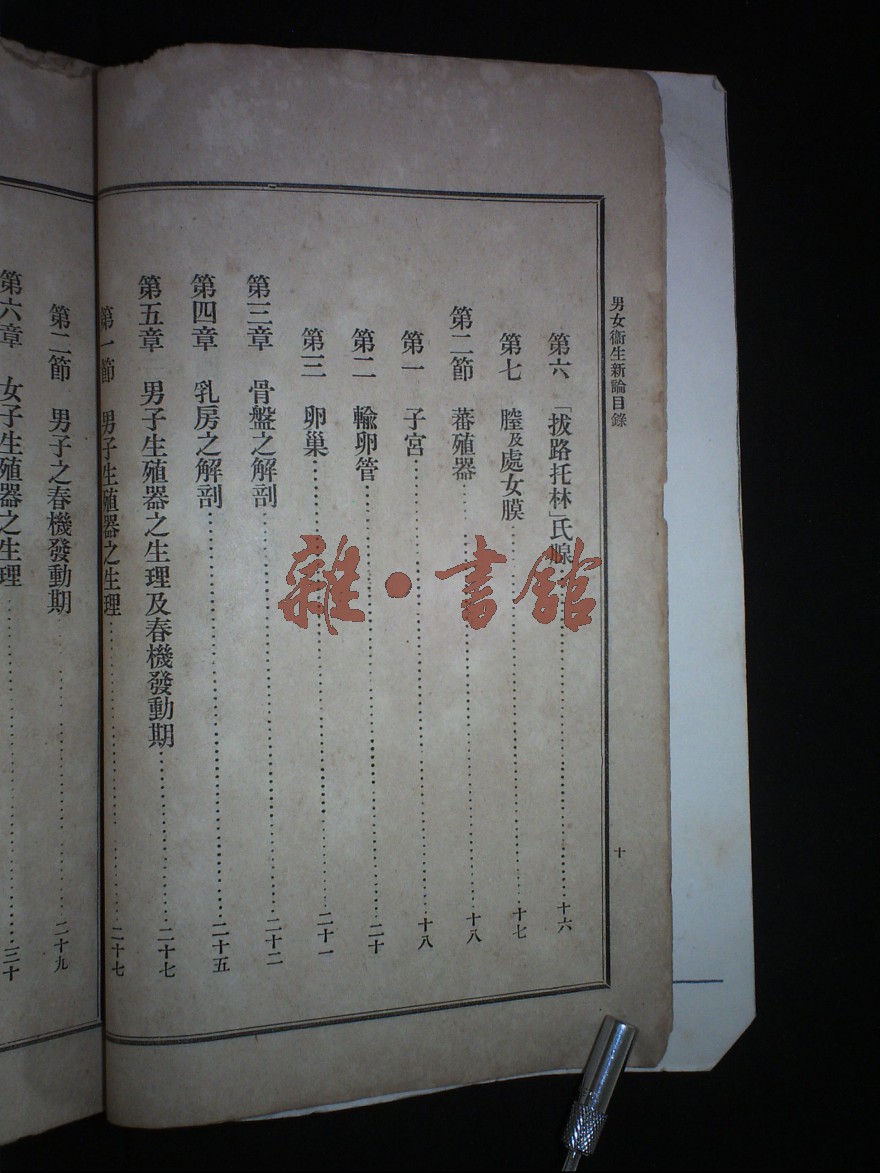 男女衞生新論目錄
十
第六 「拔路托林」氏腺 十六
第七 膣及處女膜 十七
第二節 蕃殖器 十八
第一 子宮 十八
第二 輸卵管 二十
第三 卵巢 二十一
第三章 骨盤之解剖 二十二
第四章 乳房之解剖 二十五
第五章 男子生殖器之生理及春機發動期 二十七
第一節 男子生殖器之生理 二十七
第二節 男子之春機發動期 二十九
第六章 女子生殖器之生理 三十
雜·書館